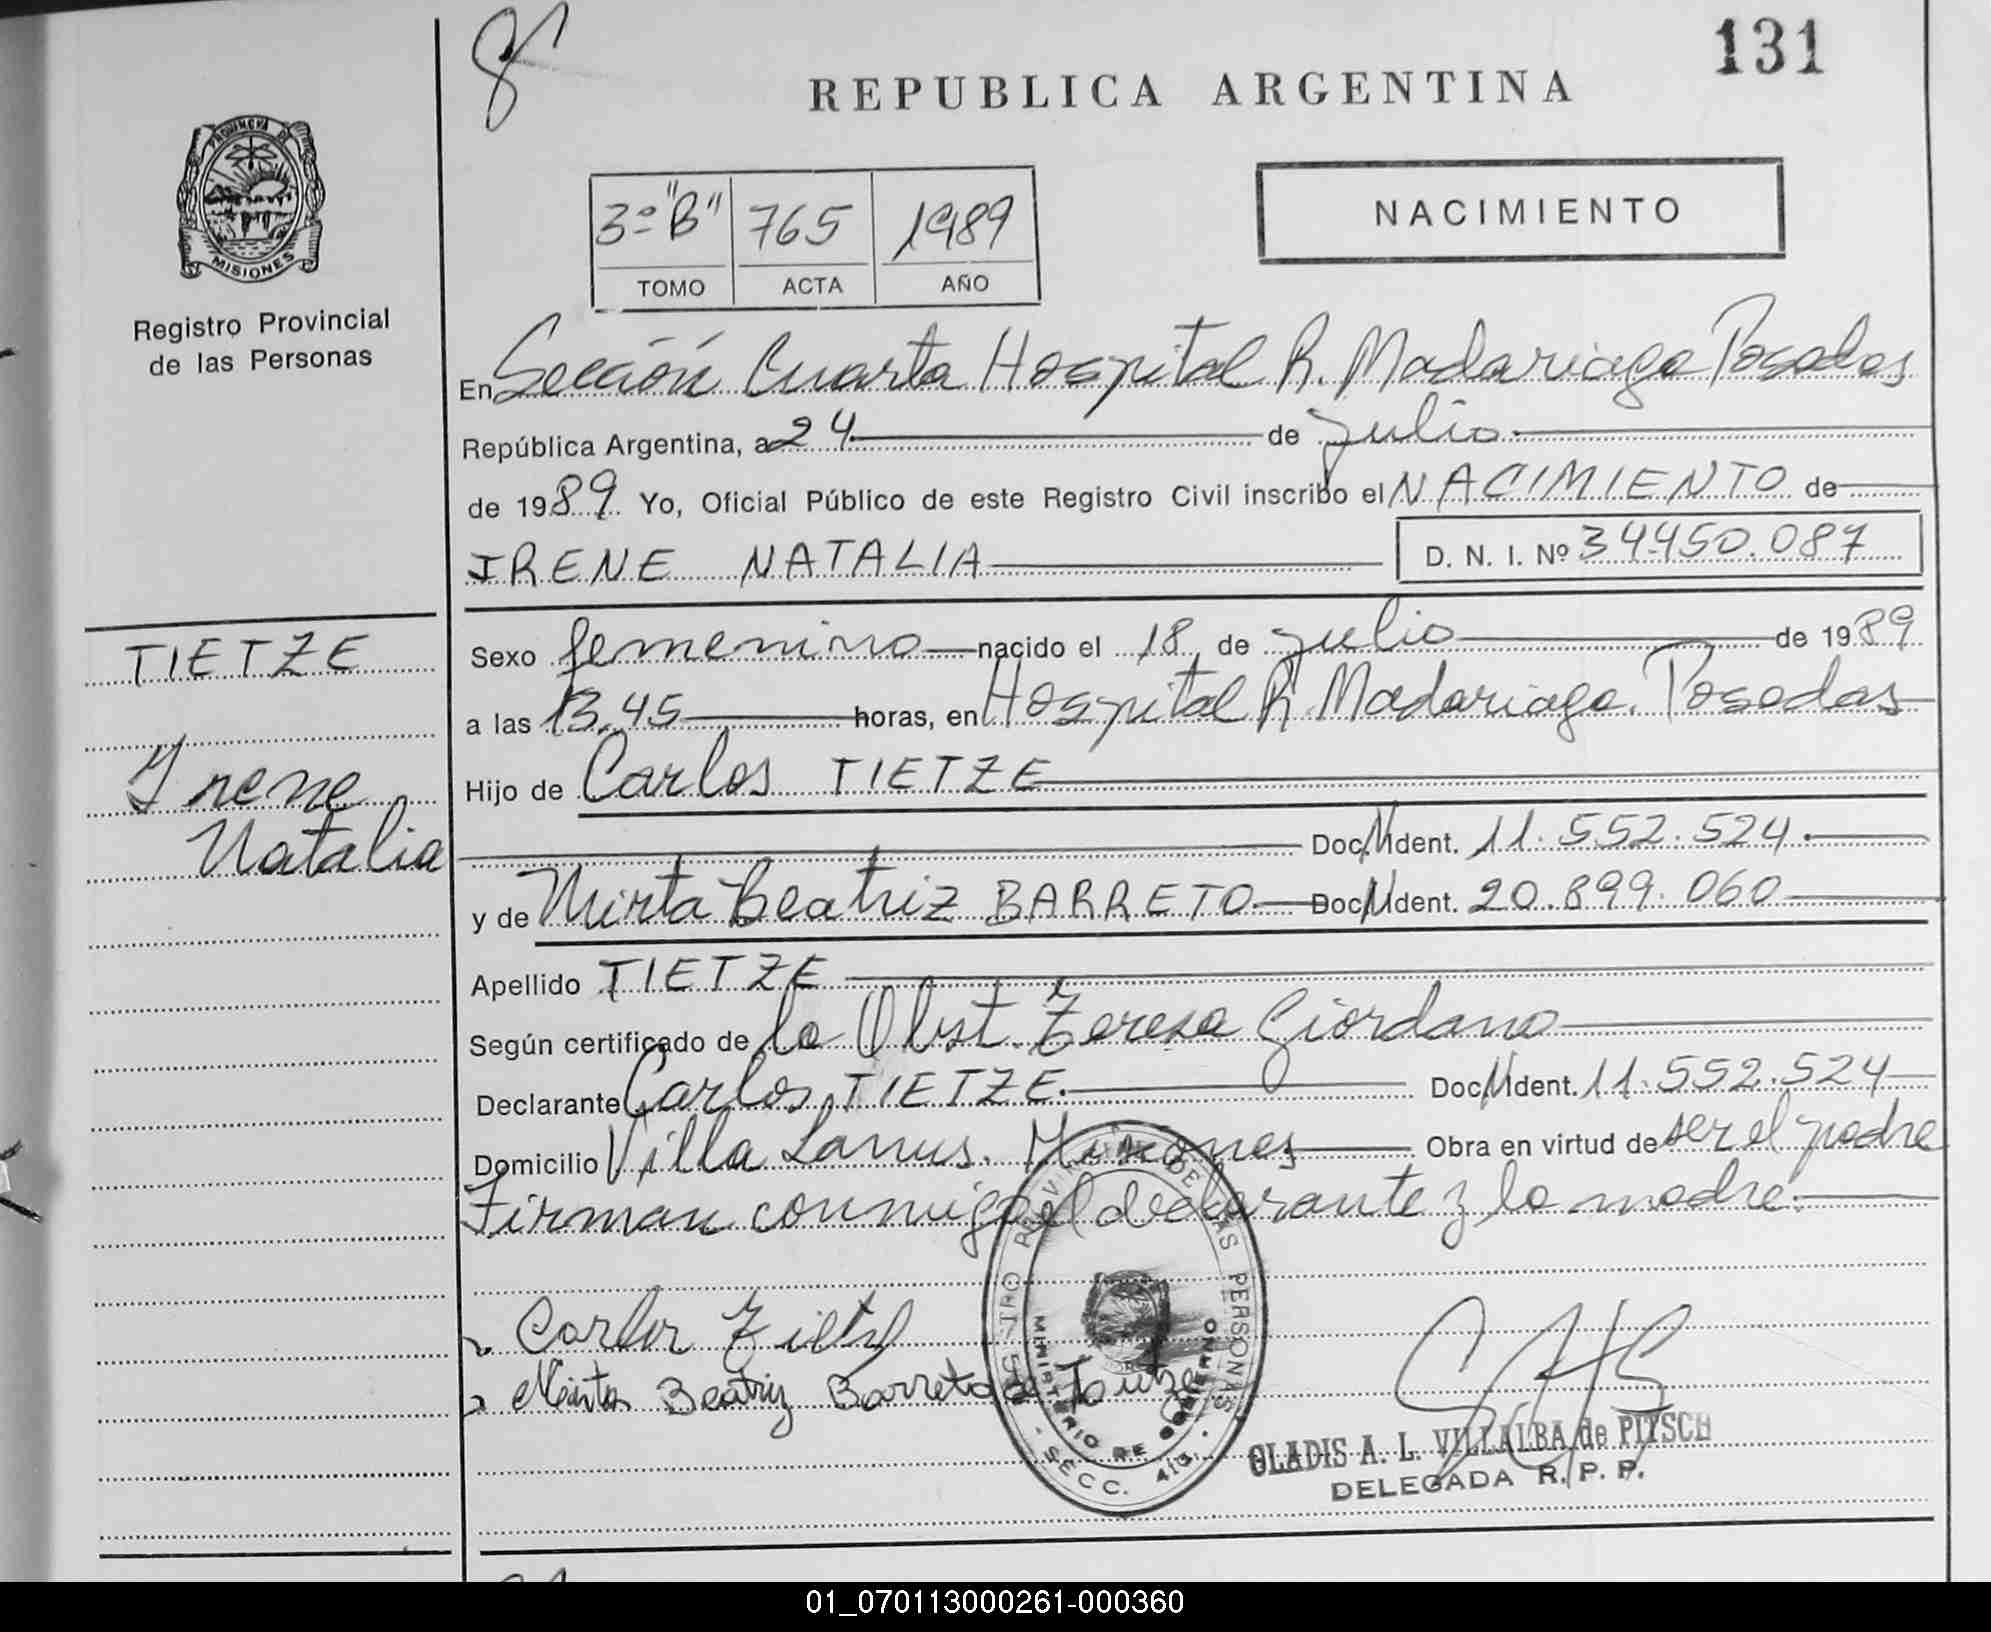 131
REPUBLICA ARGENTINA
PROVINCIA DE
MISIONES
Registro Provincial
de las Personas
3º "B" 765 1989
TOMO ACTA AÑO
NACIMIENTO
En Sección Cuarta Hospital R. Madariaga Posadas
República Argentina, a 24 de julio
de 1989 Yo, Oficial Público de este Registro Civil inscribo el NACIMIENTO de
IRENE NATALIA D. N. I. Nº 34.450.087
TIETZE
Irene
Natalia
Sexo femenino nacido el 18 de julio de 1989
a las 13,45 horas, en Hospital R. Madariaga. Posadas
Hijo de Carlos TIETZE
Doc. Ident. 11.552.524.
y de Mirta Beatriz BARRETO Doc. Ident. 20.899.060
Apellido TIETZE
Según certificado de la Obst. Teresa Giordano
Declarante Carlos TIETZE. Doc. Ident. 11.552.524
Domicilio Villa Lanus. Misiones Obra en virtud de ser el padre
Firman conmigo el declarante y la madre.
Carlos Tietze
Mirta Beatriz Barreto de Tietze
REGISTRO PROVINCIAL DE LAS PERSONAS
MINISTERIO DE GOBIERNO
SECC. 4ta.
GLADIS A. L. VILLALBA de PITSCH
DELEGADA R. P. P.
01_070113000261-000360